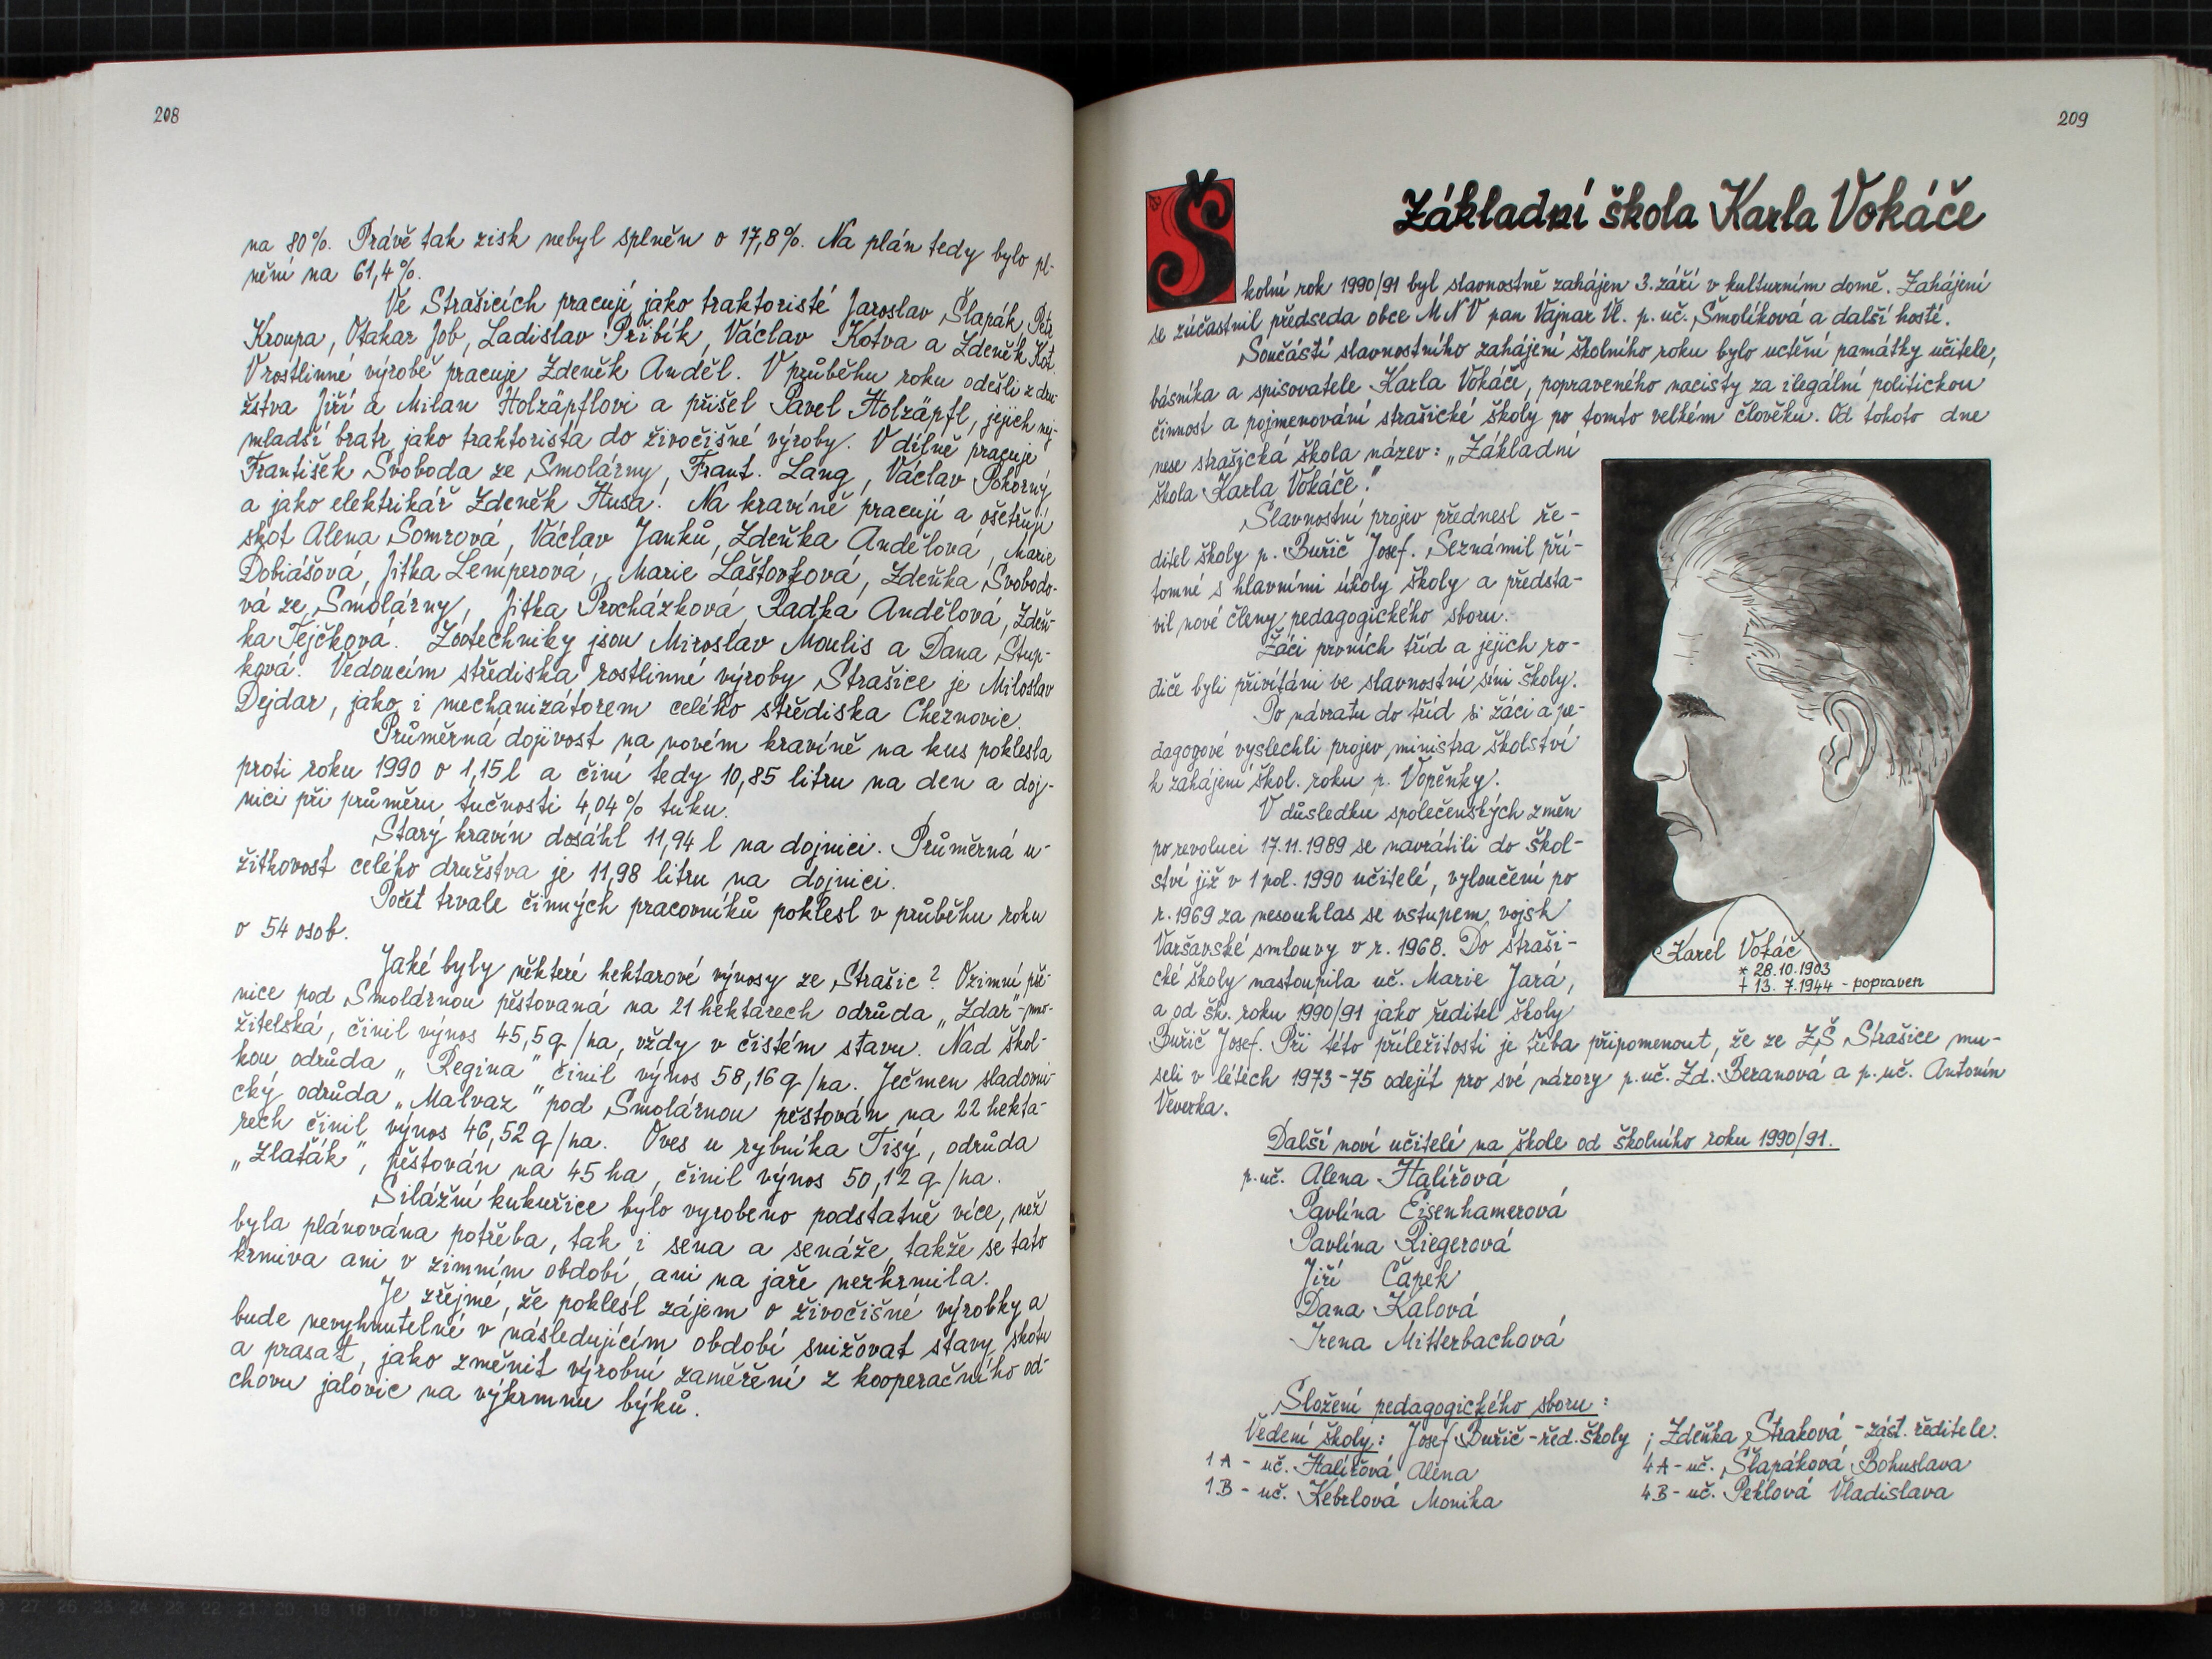 208
na 80%. Právě tak zisk nebyl splněn o 17,8%. Na plán tedy bylo pl-
nění na 61,4%.
Ve Strašicích pracují jako traktoristé Jaroslav Šlapák, Petr
Kroupa, Otakar Job, Ladislav Přibík, Václav Kotva a Zdeněk Kot.
V rostlinné výrobě pracuje Zdeněk Anděl. V průběhu roku odešli z dru-
žstva Jiří a Milan Holzäpflovi a přišel Pavel Holzäpfl, jejich nej-
mladší bratr, jako traktorista do živočišné výroby. V dílně pracuje
František Svoboda ze Smolárny, Frant. Lang, Václav Pokorný
a jako elektrikář Zdeněk Husa. Na kravíně pracují a ošetřují
skot Alena Somrová, Václav Janků, Zdeňka Andělová, Marie
Dobiášová, Jitka Lemperová, Marie Laštovková, Zdeňka Svobodo-
vá ze Smolárny, Jitka Procházková, Radka Andělová, Zdeň-
ka Tejčková. Zootechniky jsou Miroslav Moulis a Dana Stup-
ková. Vedoucím střediska rostlinné výroby Strašice je Miloslav
Dejdar, jako i mechanizátorem celého střediska Cheznovic.
Průměrná dojivost na novém kravíně na kus poklesla
proti roku 1990 o 1,15 l a činí tedy 10,85 litru na den a doj-
nici při průměru tučnosti 4,04% tuku.
Starý kravín dosáhl 11,94 l na dojnici. Průměrná u-
žitkovost celého družstva je 11,98 litru na dojnici.
Počet trvale činných pracovníků poklesl v průběhu roku
o 54 osob.
Jaké byly některé hektarové výnosy ze Strašic? Ozimní pše-
nice pod Smolárnou pěstovaná na 21 hektarech odrůda „Zdar"-mno-
žitelská, činil výnos 45,5q/ha, vždy v čistém stavu. Nad škol-
kou, odrůda „Regina" činil výnos 58,16q/ha. Ječmen sladovni-
cký odrůda „Malvaz" pod Smolárnou pěstován na 22 hekta-
rech činil výnos 46,52q/ha. Oves u rybníka Tisý, odrůda
„Zlaťák", pěstován na 45 ha, činil výnos 50,12q/ha.
Silážní kukuřice bylo vyrobeno podstatně více, než
byla plánována potřeba, tak i sena a senáže, takže se tato
krmiva ani v zimním období, ani na jaře nezkrmila.
Je zřejmé, že poklesl zájem o živočišné výrobky a
bude nevyhnutelné v následujícím období snižovat stavy skotu
a prasat, jako změnit výrobní zaměření z kooperačního od-
chovu jalovic na výkrmnu býků.
209
Základní škola Karla Vokáče
Školní rok 1990/91 byl slavnostně zahájen 3. září v kulturním domě. Zahájení
se zúčastnil předseda obce MNV pan Vajnar Vl. p. uč. Šmolíková a další hosté.
Součástí slavnostního zahájení školního roku bylo uctění památky učitele,
básníka a spisovatele Karla Vokáče, popraveného nacisty za ilegální politickou
činnost a pojmenování strašické školy po tomto velkém člověku. Od tohoto dne
nese strašická škola název: „Základní
škola Karla Vokáče."
Slavnostní projev přednesl ře-
ditel školy p. Buřič Josef. Seznámil pří-
tomné s hlavními úkoly školy a předsta-
vil nové členy pedagogického sboru.
Žáci prvních tříd a jejich ro-
diče byli přivítáni ve slavnostní síni školy.
Po návratu do tříd si žáci a pe-
dagogové vyslechli projev ministra školství
k zahájení škol. roku p. Vopěnky.
V důsledku společenských změn
po revoluci 17.11.1989 se navrátili do škol-
ství již v 1 pol. 1990 učitelé, vyloučení po
r. 1969 za nesouhlas se vstupem vojsk
Varšavské smlouvy v r. 1968. Do straši-
cké školy nastoupila uč. Marie Jará,
a od šk. roku 1990/91 jako ředitel školy
Buřič Josef. Při této příležitosti je třeba připomenout, že ze ZŠ Strašice mu-
seli v létech 1973-75 odejít pro své názory p. uč. Zd. Beranová a p. uč. Antonín
Veverka.
Karel Vokáč
* 28.10.1903
† 13. 7.1944 - popraven
Další noví učitelé na škole od školního roku 1990/91.
p. uč. Alena Halířová
Pavlína Eisenhamerová
Pavlína Riegerová
Jiří Čapek
Dana Kalová
Irena Mitterbachová
Složení pedagogického sboru:
Vedení školy: Josef Buřič - řed. školy ; Zdeňka Straková - zást. ředitele.
1A - uč. Halířová Alena 4A - uč. Šlapáková Bohuslava
1B - uč. Kébrlová Monika 4B - uč. Peklová Vladislava